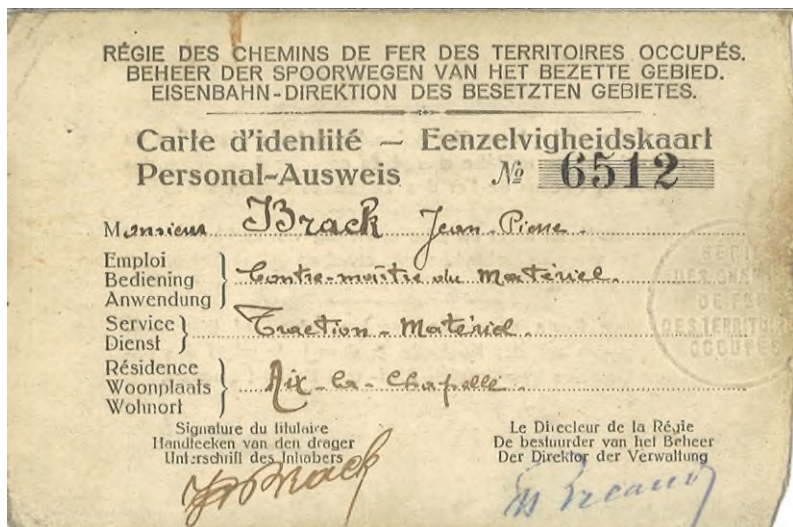 RÉGIE DES CHEMINS DE FER DES TERRITOIRES OCCUPÉS.
BEHEER DER SPOORWEGEN VAN HET BEZETTE GEBIED.
EISENBAHN-DIREKTION DES BESETZTEN GEBIETES.
Carte d'identité — Eenzelvigheidskaart
Personal-Ausweis № 6512
Monsieur Brack Jean-Pierre
Emploi
Bediening
Anwendung
Contre-maître du Matériel.
Service
Dienst
Traction - Matériel
Résidence
Woonplaats
Wohnort
Aix-la-Chapelle.
Signature du titulaire
Handteeken van den drager
Unterschrift des Inhabers
Le Directeur de la Régie
De bestuurder van het Beheer
Der Direktor der Verwaltung
Brack
RÉGIE
DES CHEM
DE FER
DES TERRITOIR
OCCUPÉS